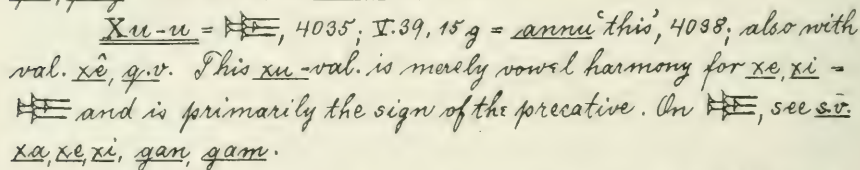 Xu-u = 𒃶, 4035; V.39, 15 g = annu 'this', 4038; also with
val. xê, q.v. This xu-val. is merely vowel harmony for xe, xi =
𒃶 and is primarily the sign of the precative. On 𒃶, see s.v.
xa, xe, xi, gan, gam.